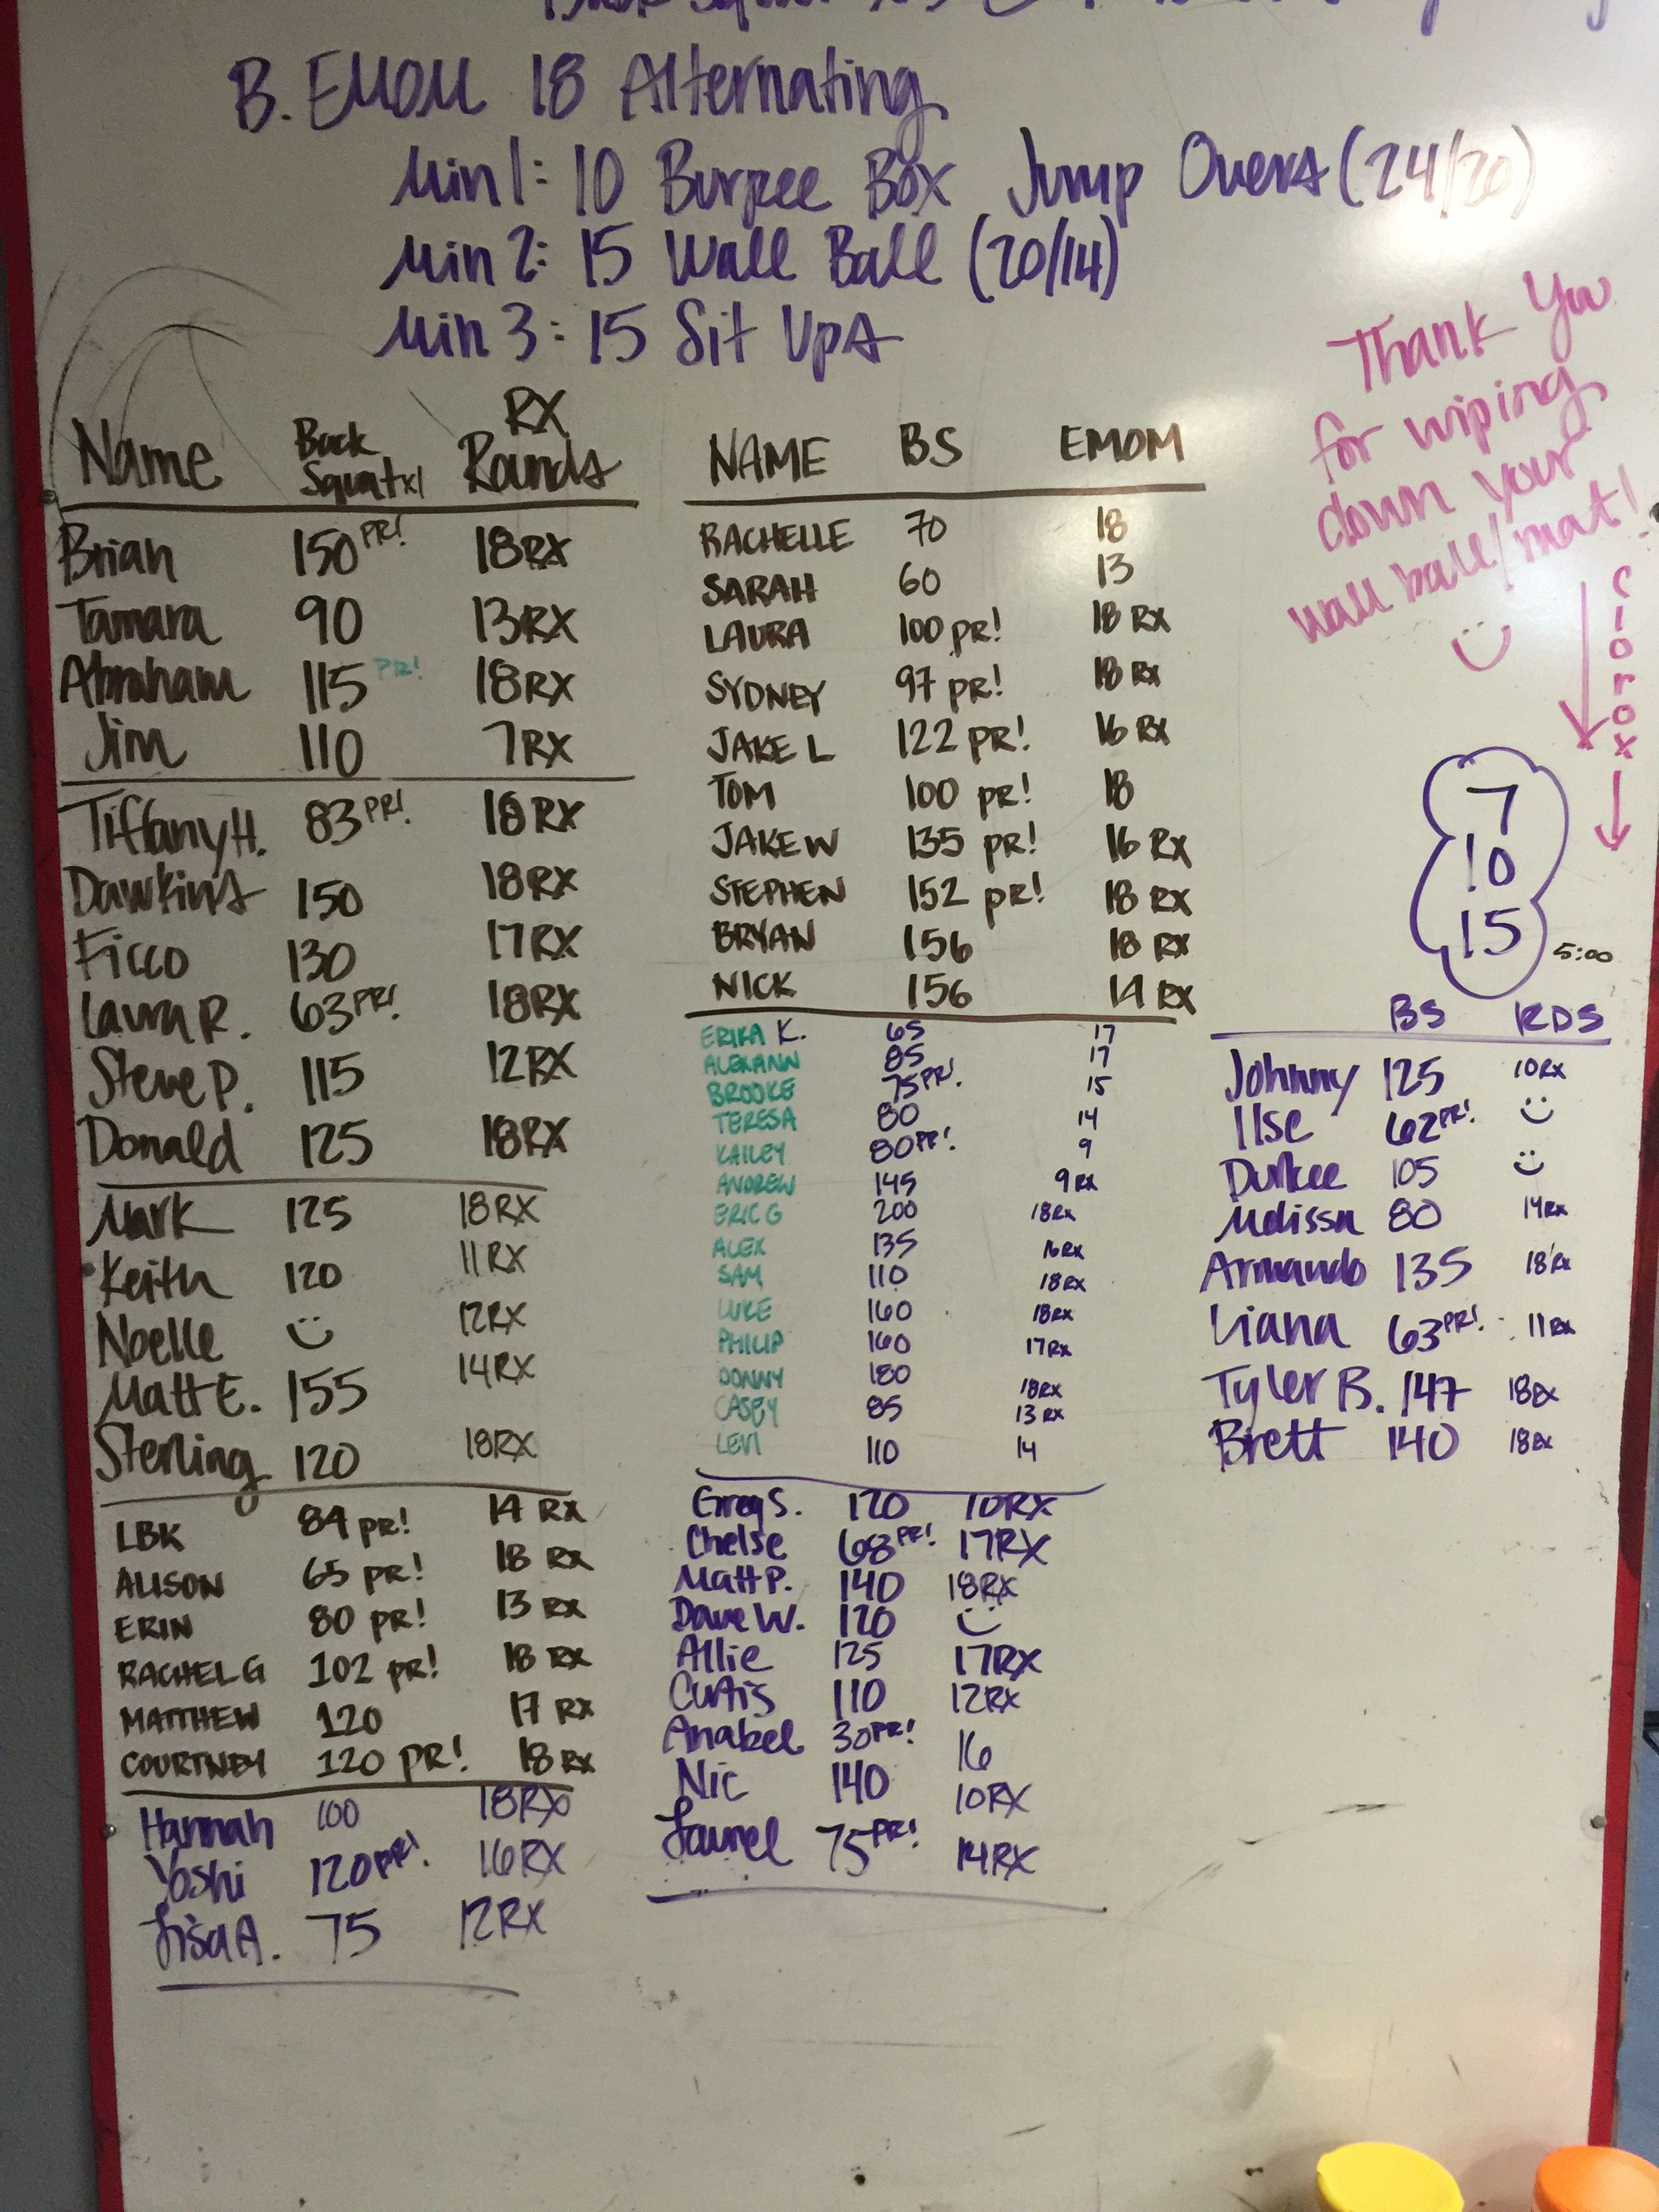 B. EMOM 18 Alternating
Min 1: 10 Burpee Box Jump Overs (24/20)
Min 2: 15 Wall Ball (20/14)
Min 3: 15 Sit Ups
Name Back Squat x1 RX Rounds
Brian 150 PR! 18RX
Tamara 90 13RX
Abraham 115 PR! 18RX
Jim 110 7RX
Tiffany H. 83 PR! 18RX
Dawkins 150 18RX
Ficco 130 17RX
Laura R. 63 PR! 18RX
Steve P. 115 12RX
Donald 125 18RX
Mark 125 18RX
Keith 120 11RX
Noelle 12RX
Matt E. 155 14RX
Sterling 120 18RX
LBK 84 PR! 14 RX
ALISON 65 PR! 18 RX
ERIN 80 PR! 13 RX
RACHEL G 102 PR! 18 RX
MATTHEW 120 17 RX
COURTNEY 120 PR! 18 RX
Hannah 100 18RX
Yoshi 120 PR! 16RX
Lisa A. 75 12RX
NAME BS EMOM
RACHELLE 70 18
SARAH 60 13
LAURA 100 PR! 18 RX
SYDNEY 97 PR! 18 RX
JAKE L 122 PR! 16 RX
TOM 100 PR! 18
JAKE W 135 PR! 16 RX
STEPHEN 152 PR! 18 RX
BRYAN 156 18 RX
NICK 156 14 RX
ERIKA K. 65 17
ALEXANN 85 17
BROOKE 75 PR! 15
TERESA 80 14
KAILEY 80 PR! 9
ANDREW 145 9 RX
ERIC G 200 18RX
ALEX 135 16RX
SAM 110 18RX
LUKE 160 18RX
PHILIP 160 17RX
DONNY 180 18RX
CASEY 85 13 RX
LEVI 110 14
Greg S. 120 10RX
Chelse 68 PR! 17RX
Matt P. 140 18RX
Dave W. 120
Allie 125 17RX
Curtis 110 12RX
Anabel 30 PR! 16
Nic 140 10RX
Laurel 75 PR! 14RX
Thank You
for wiping
down your
wall ball/mat!
Clorox
7
10
15
5:00
BS RDS
Johnny 125 10RX
Ilse 62 PR!
Durkee 105
Melissa 80 14RX
Armando 135 18RX
Liana 63 PR! 11RX
Tyler B. 147 18RX
Brett 140 18RX